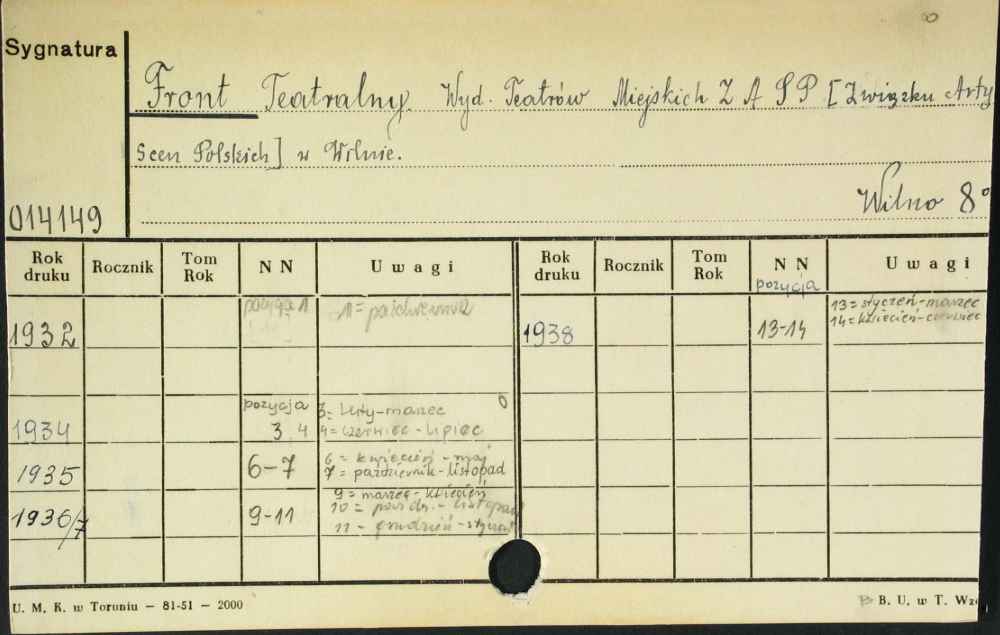 Sygnatura
Front Teatralny. Wyd. Teatrów Miejskich Z A S P [Związku Arty
Scen Polskich] w Wilnie.
Wilno 8°
014149
Rok druku Rocznik Tom Rok N N Uwagi Rok druku Rocznik Tom Rok N N Uwagi
pozycja
1932 pozycja 1 1 = październik 1938 13-14 13 = styczeń-marzec
14 = kwiecień-czerwiec
1934 pozycja 3, 4 3 = luty-marzec
4 = czerwiec-lipiec
1935 6-7 6 = kwiecień-maj
7 = październik-listopad
1936/7 9-11 9 = marzec-kwiecień
10 = paźdz.-listopad
11 - grudzień-stycz
U. M. K. w Toruniu — 81-51 — 2000
B. U. w T. Wzó